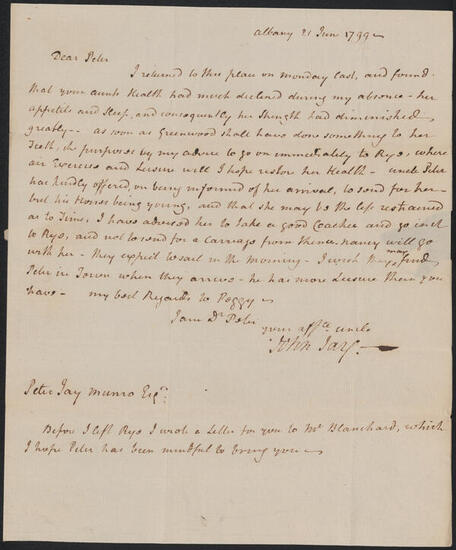 Albany 21 Jun 1799
Dear Peter
I returned to this place on monday last, and found
that your aunts Health had much declined during my absence - her
appetite and Sleep, and consequently her Strength had diminished
greatly - as soon as Greenwood shall have done something to her
Teeth, she purposes by my advice to go on immediately to Rye, where
air Exercise and Leisure will I hope restor her Health - uncle Peter
has kindly offered, on being informed of her arrival, to send for her -
but his Horses being young, and that she may be the less restrained
as to Time, I have advised her to take a good Coachee and go in it
to Rye, and not to send for a Carriage from thence. nancy will go
with her - they expect to sail in the morning - I wish they may find
Peter in Town when they arrive - he has more Leisure than you
have - my best Regards to Peggy -
I am Dr Peter
your affte uncle
John Jay
Peter Jay Munro Esqr.
Before I left Rye I wrote a Letter for you to Mr Blanchard, which
I hope Peter has been mindful to bring you -